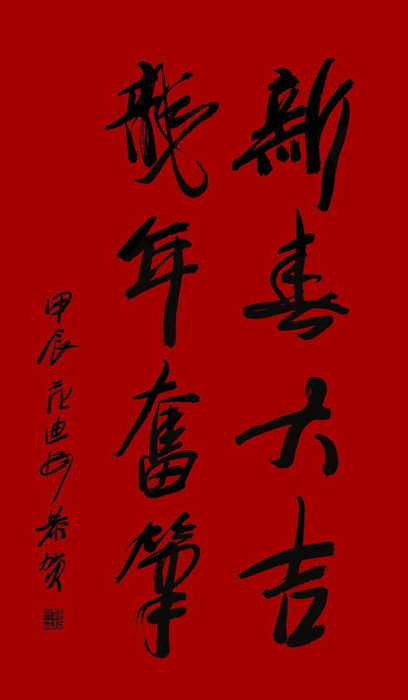 新春大吉
龍年奮筆
甲辰范迪安恭賀